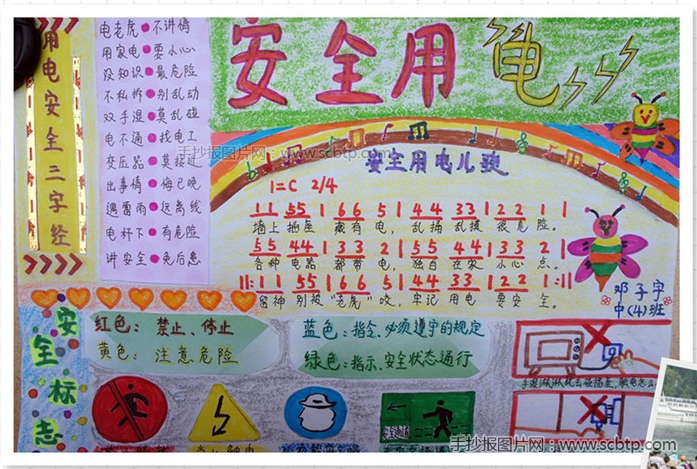 安全用电
用电安全三字经
电老虎●不讲情
用家电●要小心
没知识●最危险
不私拆●别乱动
双手湿●莫乱碰
电不通●找电工
变压器●莫接近
出事情●悔已晚
遇雷雨●远离线
电杆下●有危险
讲安全●免后患
手抄报图片网：www.scbtp.com
安全用电儿歌
1=C 2/4
11 55 | 166 5 | 44 33 | 22 1 |
墙上插座 藏有电, 乱插乱摸 很危险。
55 44 | 33 2 | 55 44 | 33 2 |
各种电器 都带电, 独自在家 小心点。
11: 11 55 | 166 5 | 44 33 | 22 1 :||
留神别被"老虎"咬, 牢记用电 要安全。
邓子宇
中(4)班
安全标志
红色：禁止、停止
黄色：注意危险
蓝色：指令,必须遵守的规定
绿色：指示、安全状态通行
手抄报图片网：www.scbtp.com